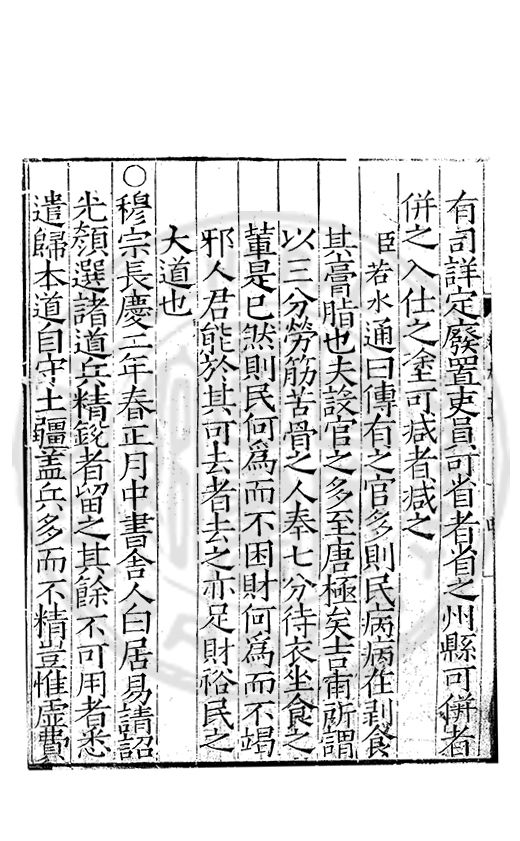 有司詳定廢置吏員可省者省之州縣可併者
併之入仕之塗可减者减之
臣若水通曰傳有之官多則民病病在剥食
其膏脂也夫設官之多至唐極矣吉甫所謂
以三分勞筋苦骨之人奉七分待衣坐食之
輩是已然則民何爲而不困財何爲而不竭
邪人君能於其可去者去之亦足財裕民之
大道也
○穆宗長慶二年春正月中書舎人白居易請詔
光顔選諸道兵精鋭者留之其餘不可用者悉
遣歸本道自守土疆盖兵多而不精豈惟虚費